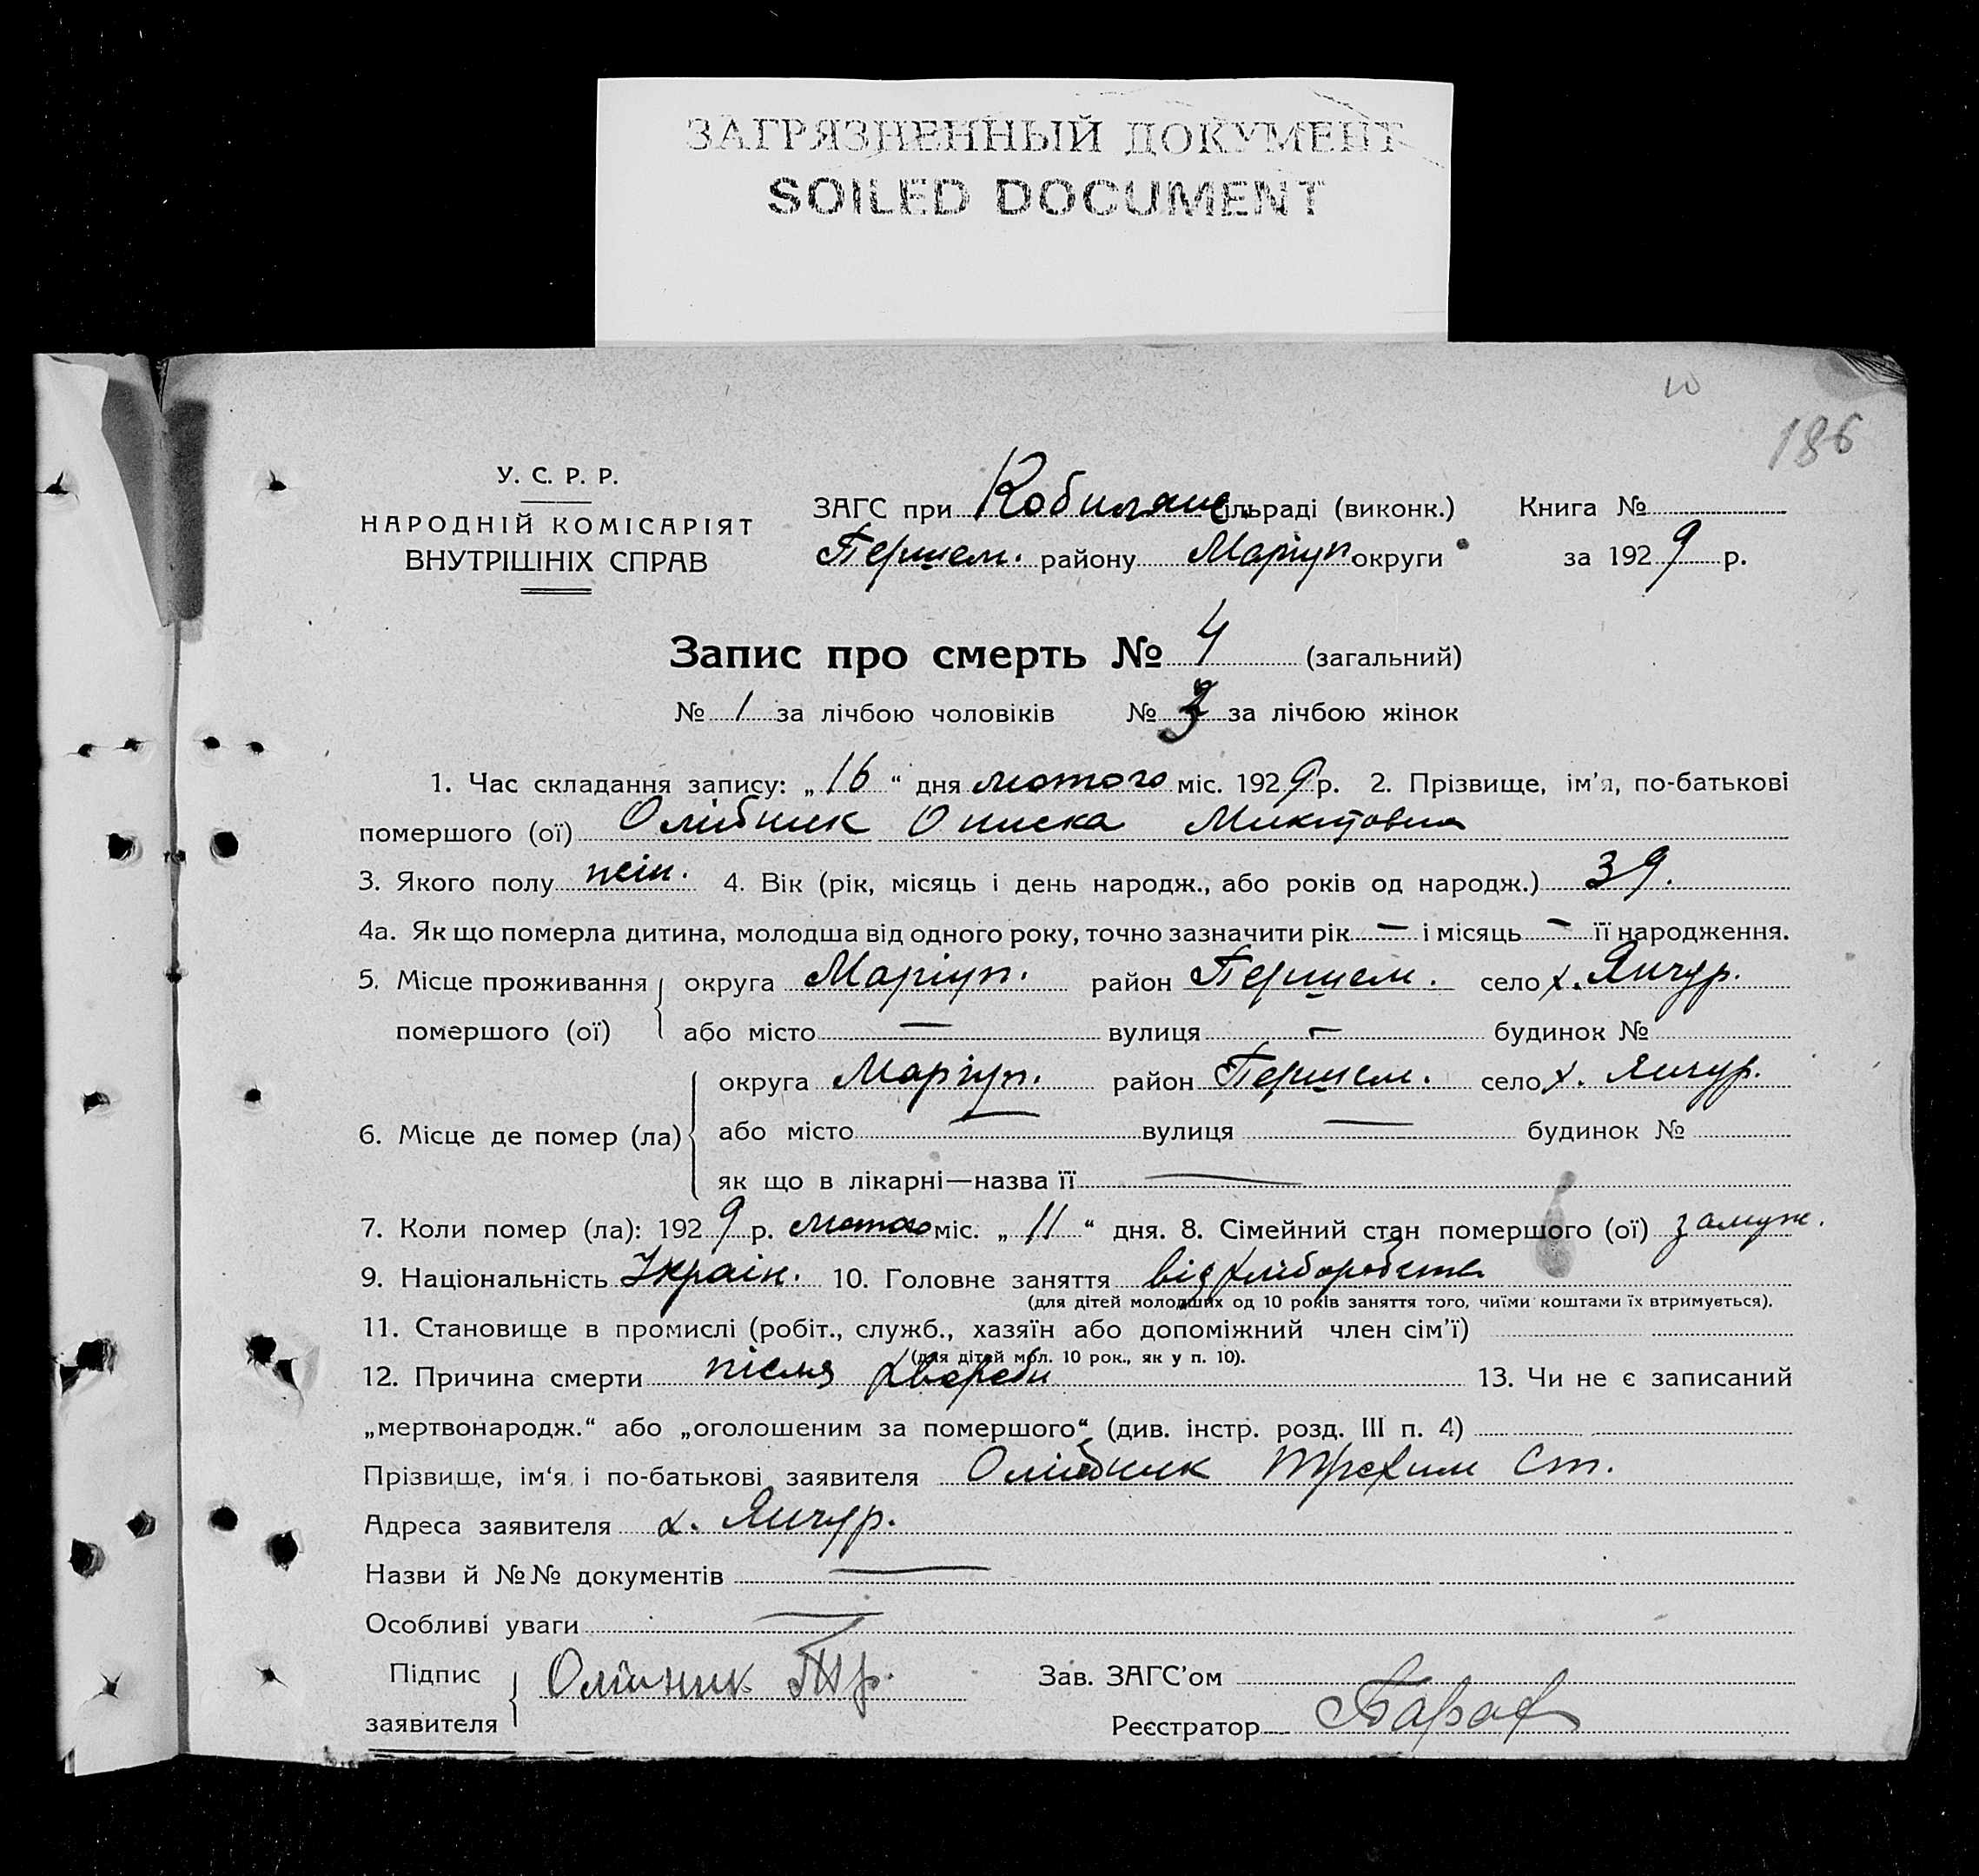 ЗАГРЯЗНЕННЫЙ ДОКУМЕНТ
SOILED DOCUMENT
186
У. С. Р. Р.
НАРОДНІЙ КОМІСАРІЯТ
ВНУТРІШНІХ СПРАВ
ЗАГС при Кобиляц. сільраді (виконк.) Книга №
Першем. району Маріуп округи за 1929 р.
Запис про смерть № 4 (загальний)
№ 1 за лічбою чоловіків № 3 за лічбою жінок
1. Час складання запису: „16“ дня лютого міс. 1929 р. 2. Прізвище, ім'я, по-батькові
помершого (ої) Олійник Описка Микитовна
3. Якого полу жін. 4. Вік (рік, місяць і день народж., або років од народж.) 39.
4а. Як що померла дитина, молодша від одного року, точно зазначити рік — і місяць — її народження.
5. Місце проживання помершого (ої) округа Маріуп. район Першем. село х. Янчур.
або місто — вулиця — будинок №
6. Місце де помер (ла) округа Маріуп. район Першем. село х. Янчур.
або місто — вулиця — будинок №
як що в лікарні—назва її —
7. Коли помер (ла): 1929 р. лютого міс. „11“ дня. 8. Сімейний стан помершого (ої) замуж.
9. Національність Україн. 10. Головне заняття від хліборобства
(для дітей молодших од 10 років заняття того, чиїми коштами їх втримується).
11. Становище в промислі (робіт., служб., хазяїн або допоміжний член сім'ї)
(для дітей мол. 10 рок., як у п. 10).
12. Причина смерти після хвороби 13. Чи не є записаний
„мертвонародж.“ або „оголошеним за помершого“ (див. інстр. розд. III п. 4)
Прізвище, ім'я і по-батькові заявителя Олійник Трохим Ст.
Адреса заявителя х. Янчур.
Назви й №№ документів —
Особливі уваги —
Підпис заявителя Олійник Тр.
Зав. ЗАГС'ом
Реєстратор